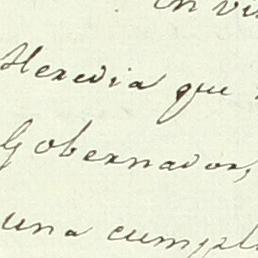 en vi
Heredia que
Gobernador,
una cumpl